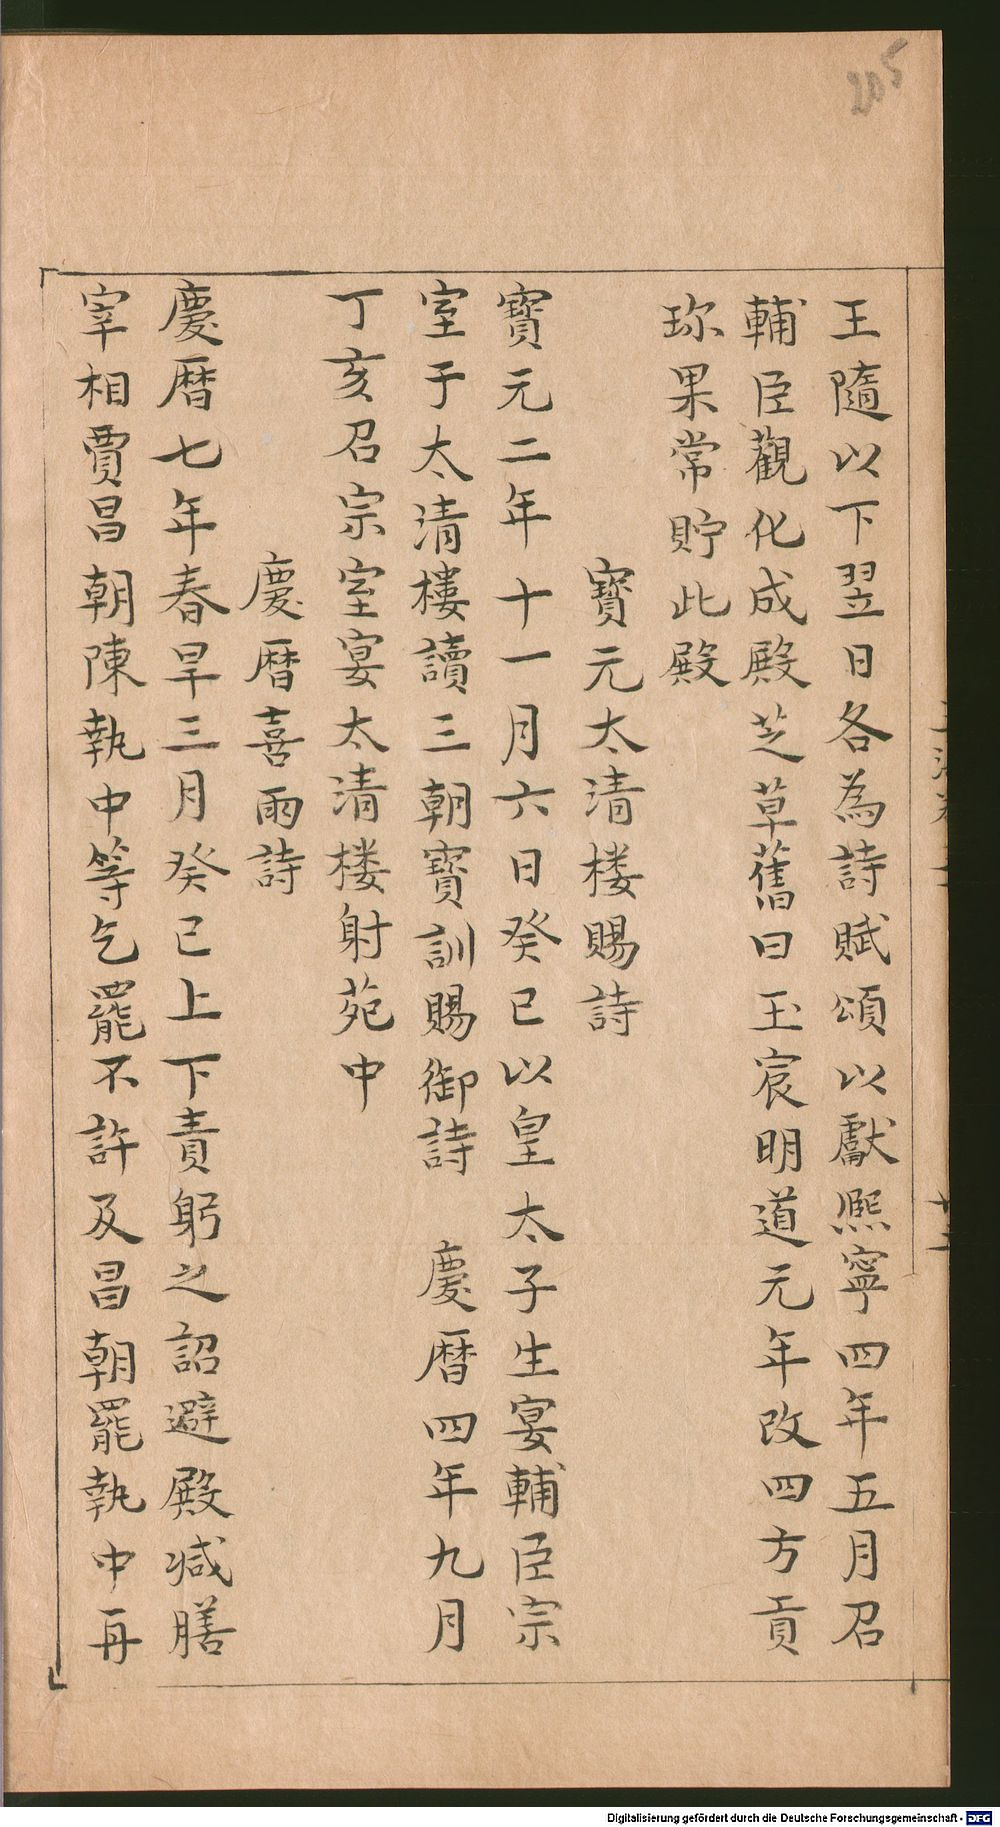 205
王隨以下翌日各為詩賦頌以獻熈寧四年五月召
輔臣觀化成殿芝草舊曰玉宸明道元年改四方貢
珎果常貯此殿
寳元太清楼賜詩
寳元二年十一月六日癸巳以皇太子生宴輔臣宗
室于太清樓讀三朝寳訓賜御詩 慶暦四年九月
丁亥召宗室宴太清楼射苑中
慶暦喜雨詩
慶暦七年春旱三月癸巳上下責躬之詔避殿減膳
宰相賈昌朝陳執中等乞罷不許及昌朝罷執中再
Digitalisierung gefördert durch die Deutsche Forschungsgemeinschaft - DFG